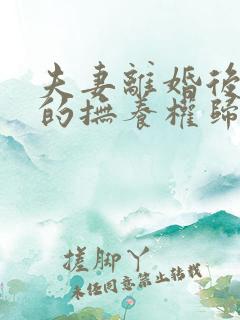 夫妻離婚後
的撫養權歸
搓脚丫
未任同意禁止轉載